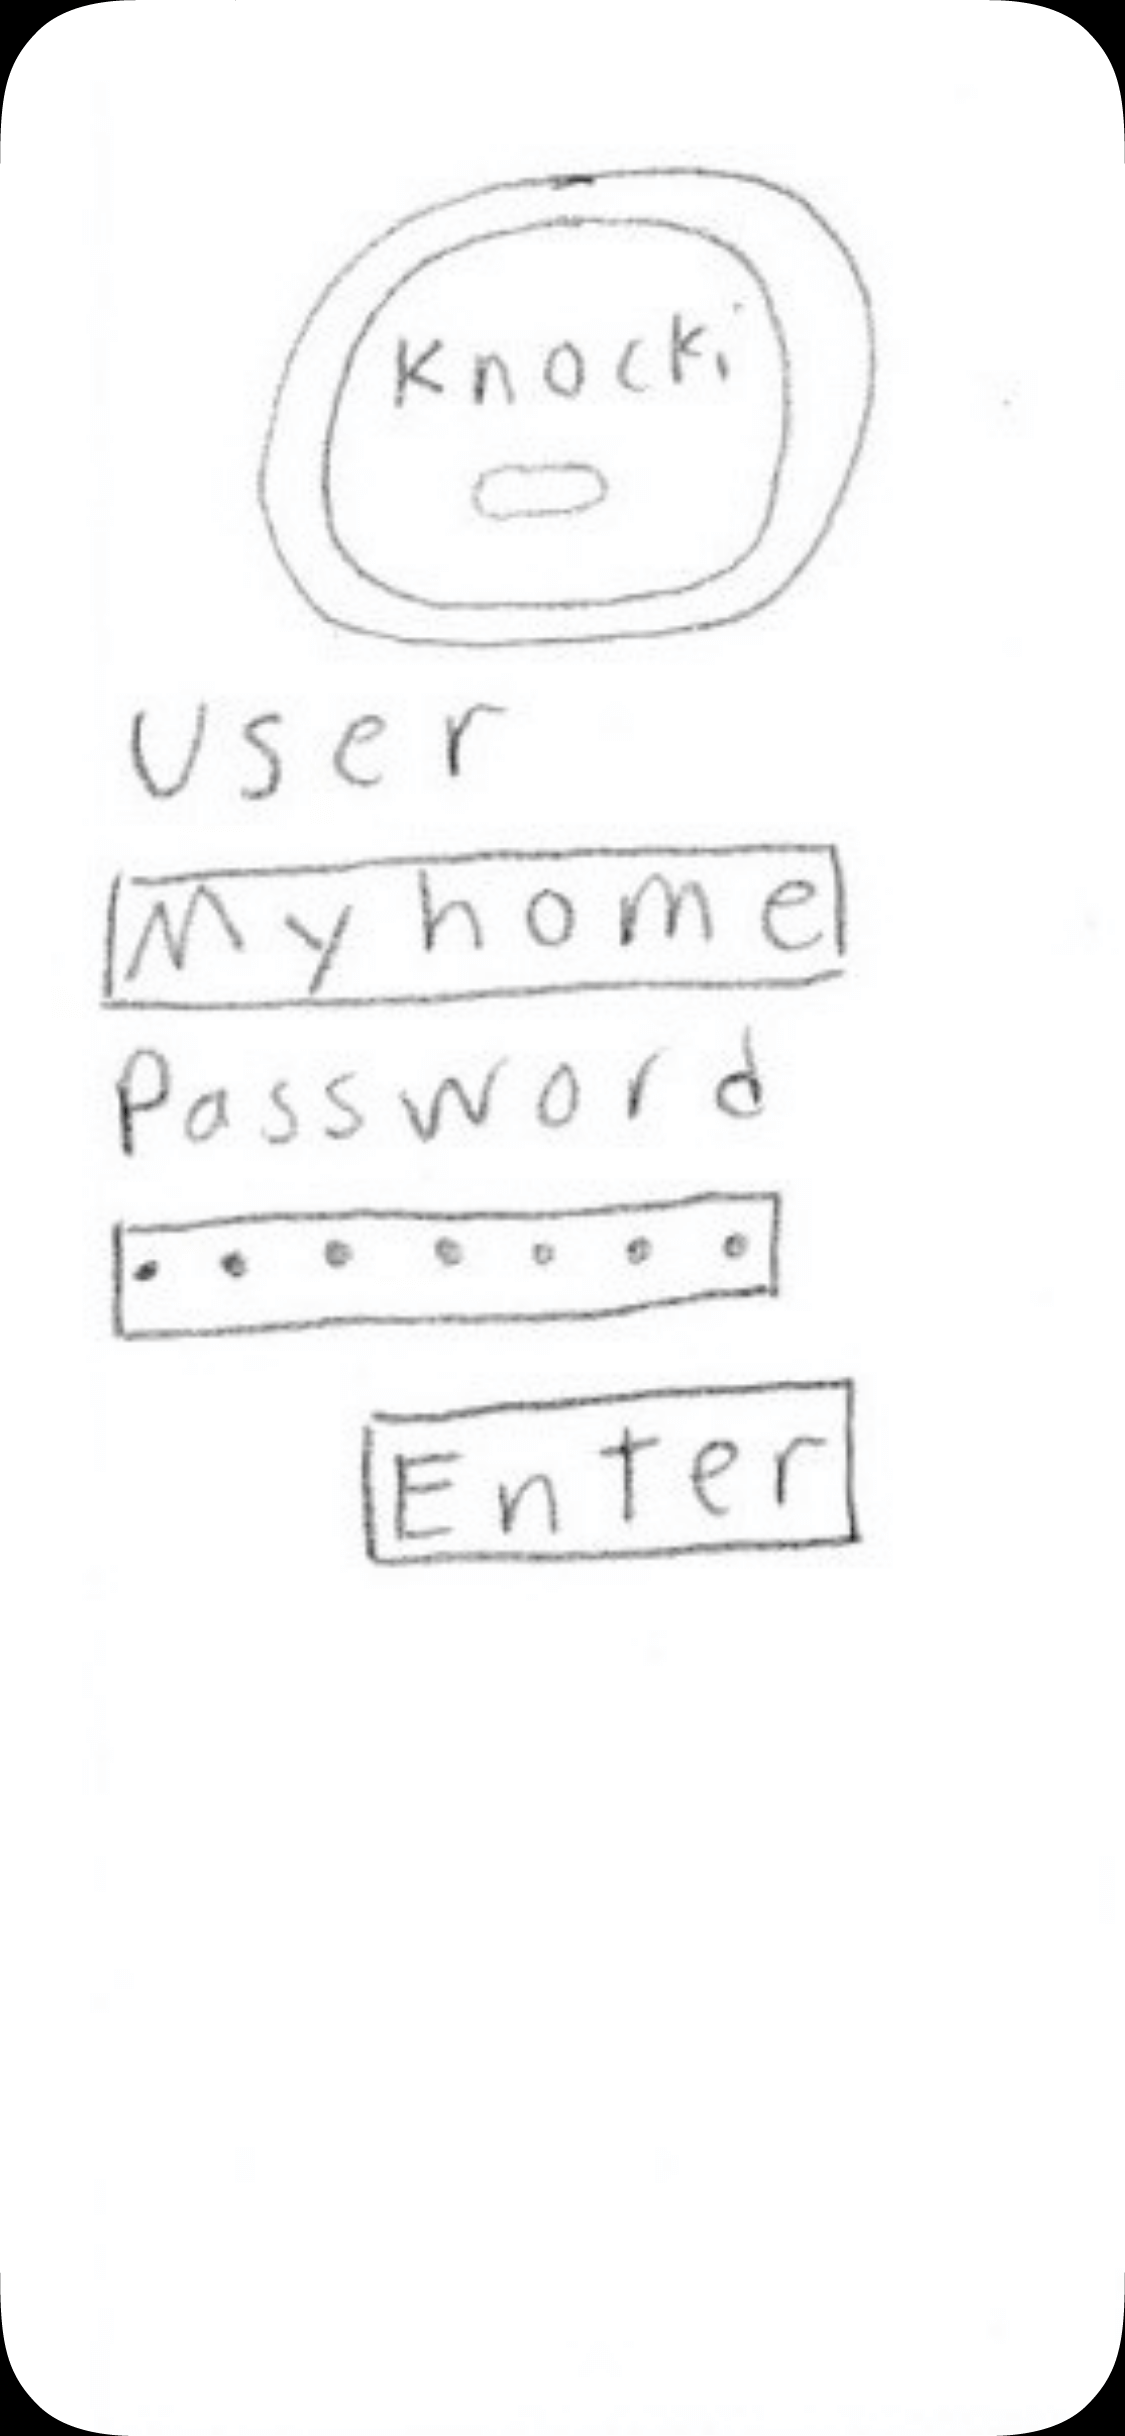 Knocki
User
My home
Password
Enter